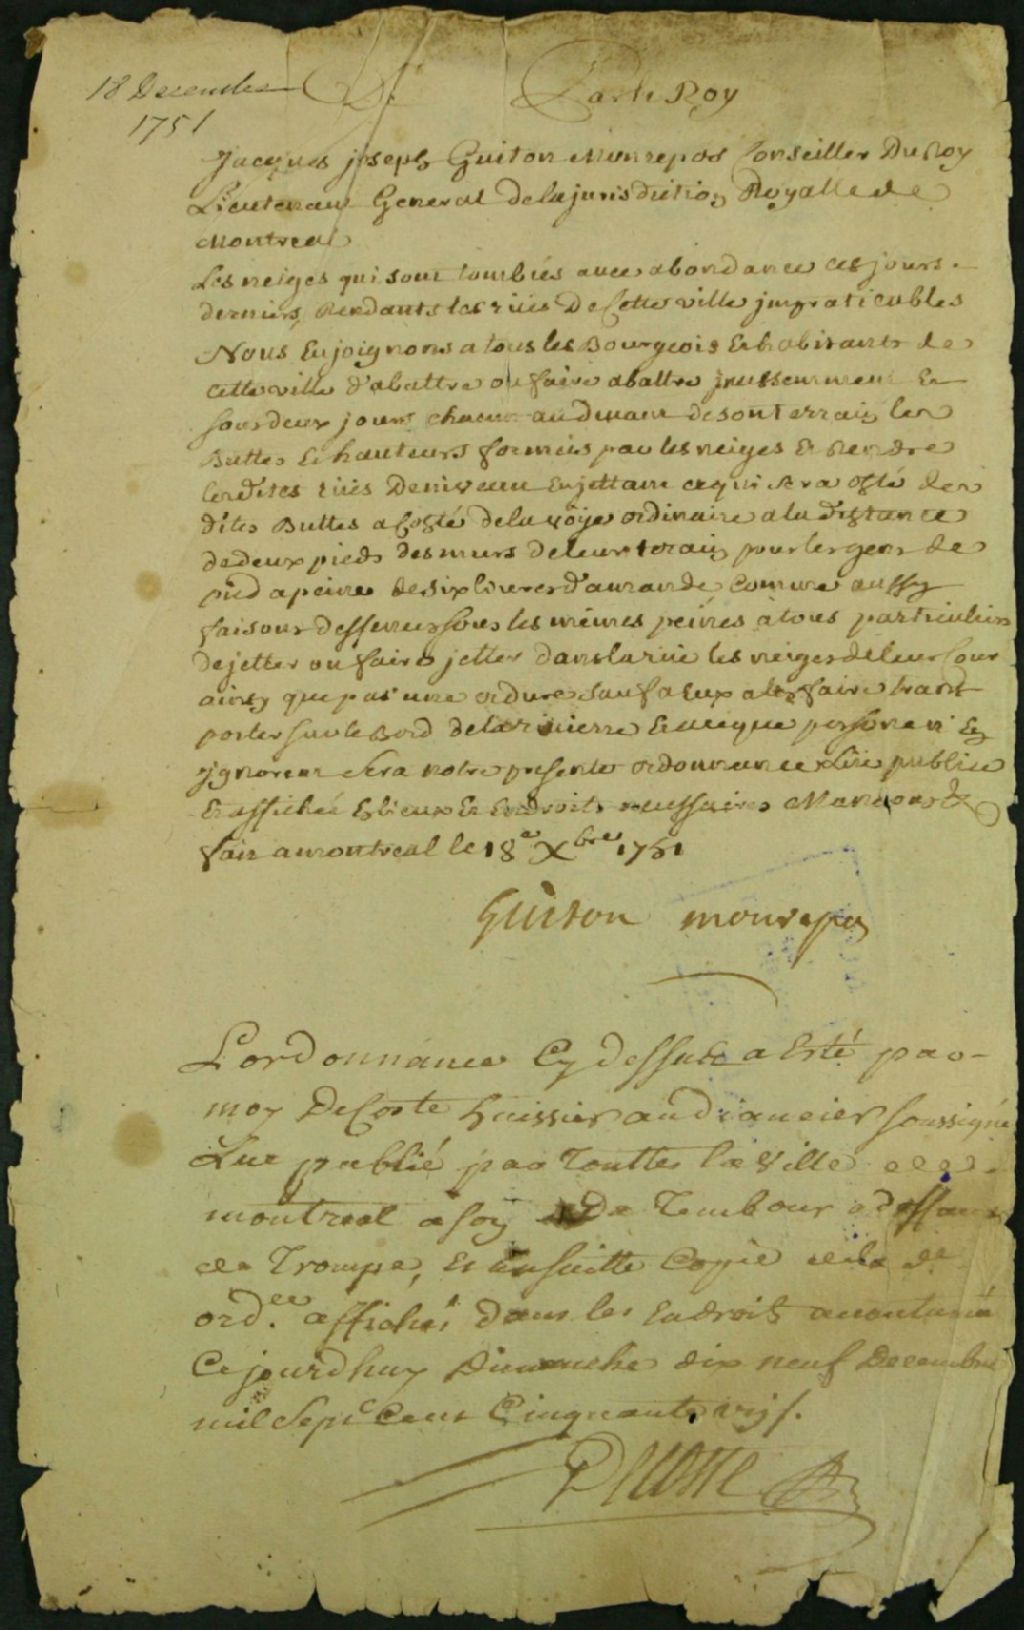 18 Decembre
1751
De Par le Roy
Jacques joseph Guiton Monrepos Conseiller Du Roy
Lieutenant General de la jurisdiction Royalle de
Montreal
Les neiges qui sont tombées avec abondance ces jours
derniers, Rendants les rües De Cette ville impraticables
Nous Enjoignons a tous les Bourgeois Et habitants de
Cette ville d'abattre ou faire abattre incessemment Et
sous deux jours chacun au devant de son terrain les
Buttes Et hauteurs formées par les neiges Et Rendre
lesdites rües De niveau En jettant ce qui sera osté des
dites Buttes a Costé de la voye ordinaire a la distance
de deux pieds des murs de leur terain pour les gens de
pied a peine de six livres d'amande Comme aussy
faisons deffences sous les mêmes peines a tous particuliers
de jetter ou faire jetter dans la rüe les neiges de leur Cour
ainsy que pas une ordure sauf a eux a les faire trans-
porter sur le Bord de la riviere Et aceque personne n'En
ignorent sera notre presente ordonnance Lüe publiée
Et affichée Es lieux Et Endroits necessaires Mandons &
fait a montreal le 18e Xbre 1751
Guiton monrepos
L'ordonnance Cy dessus a Esté par
moy DeCoste huissier audiancier soussigné
Lue publié par Toutte la Ville de
montreal a son De Tembour a deffaut
de Trompe, Et Ensuitte Copie de la de
ordce affiché dans les Endroits accoutumé
Ce jourdhuy Dimanche dix neuf Decembre
mil Sept Cent Cinquante un
Decoste